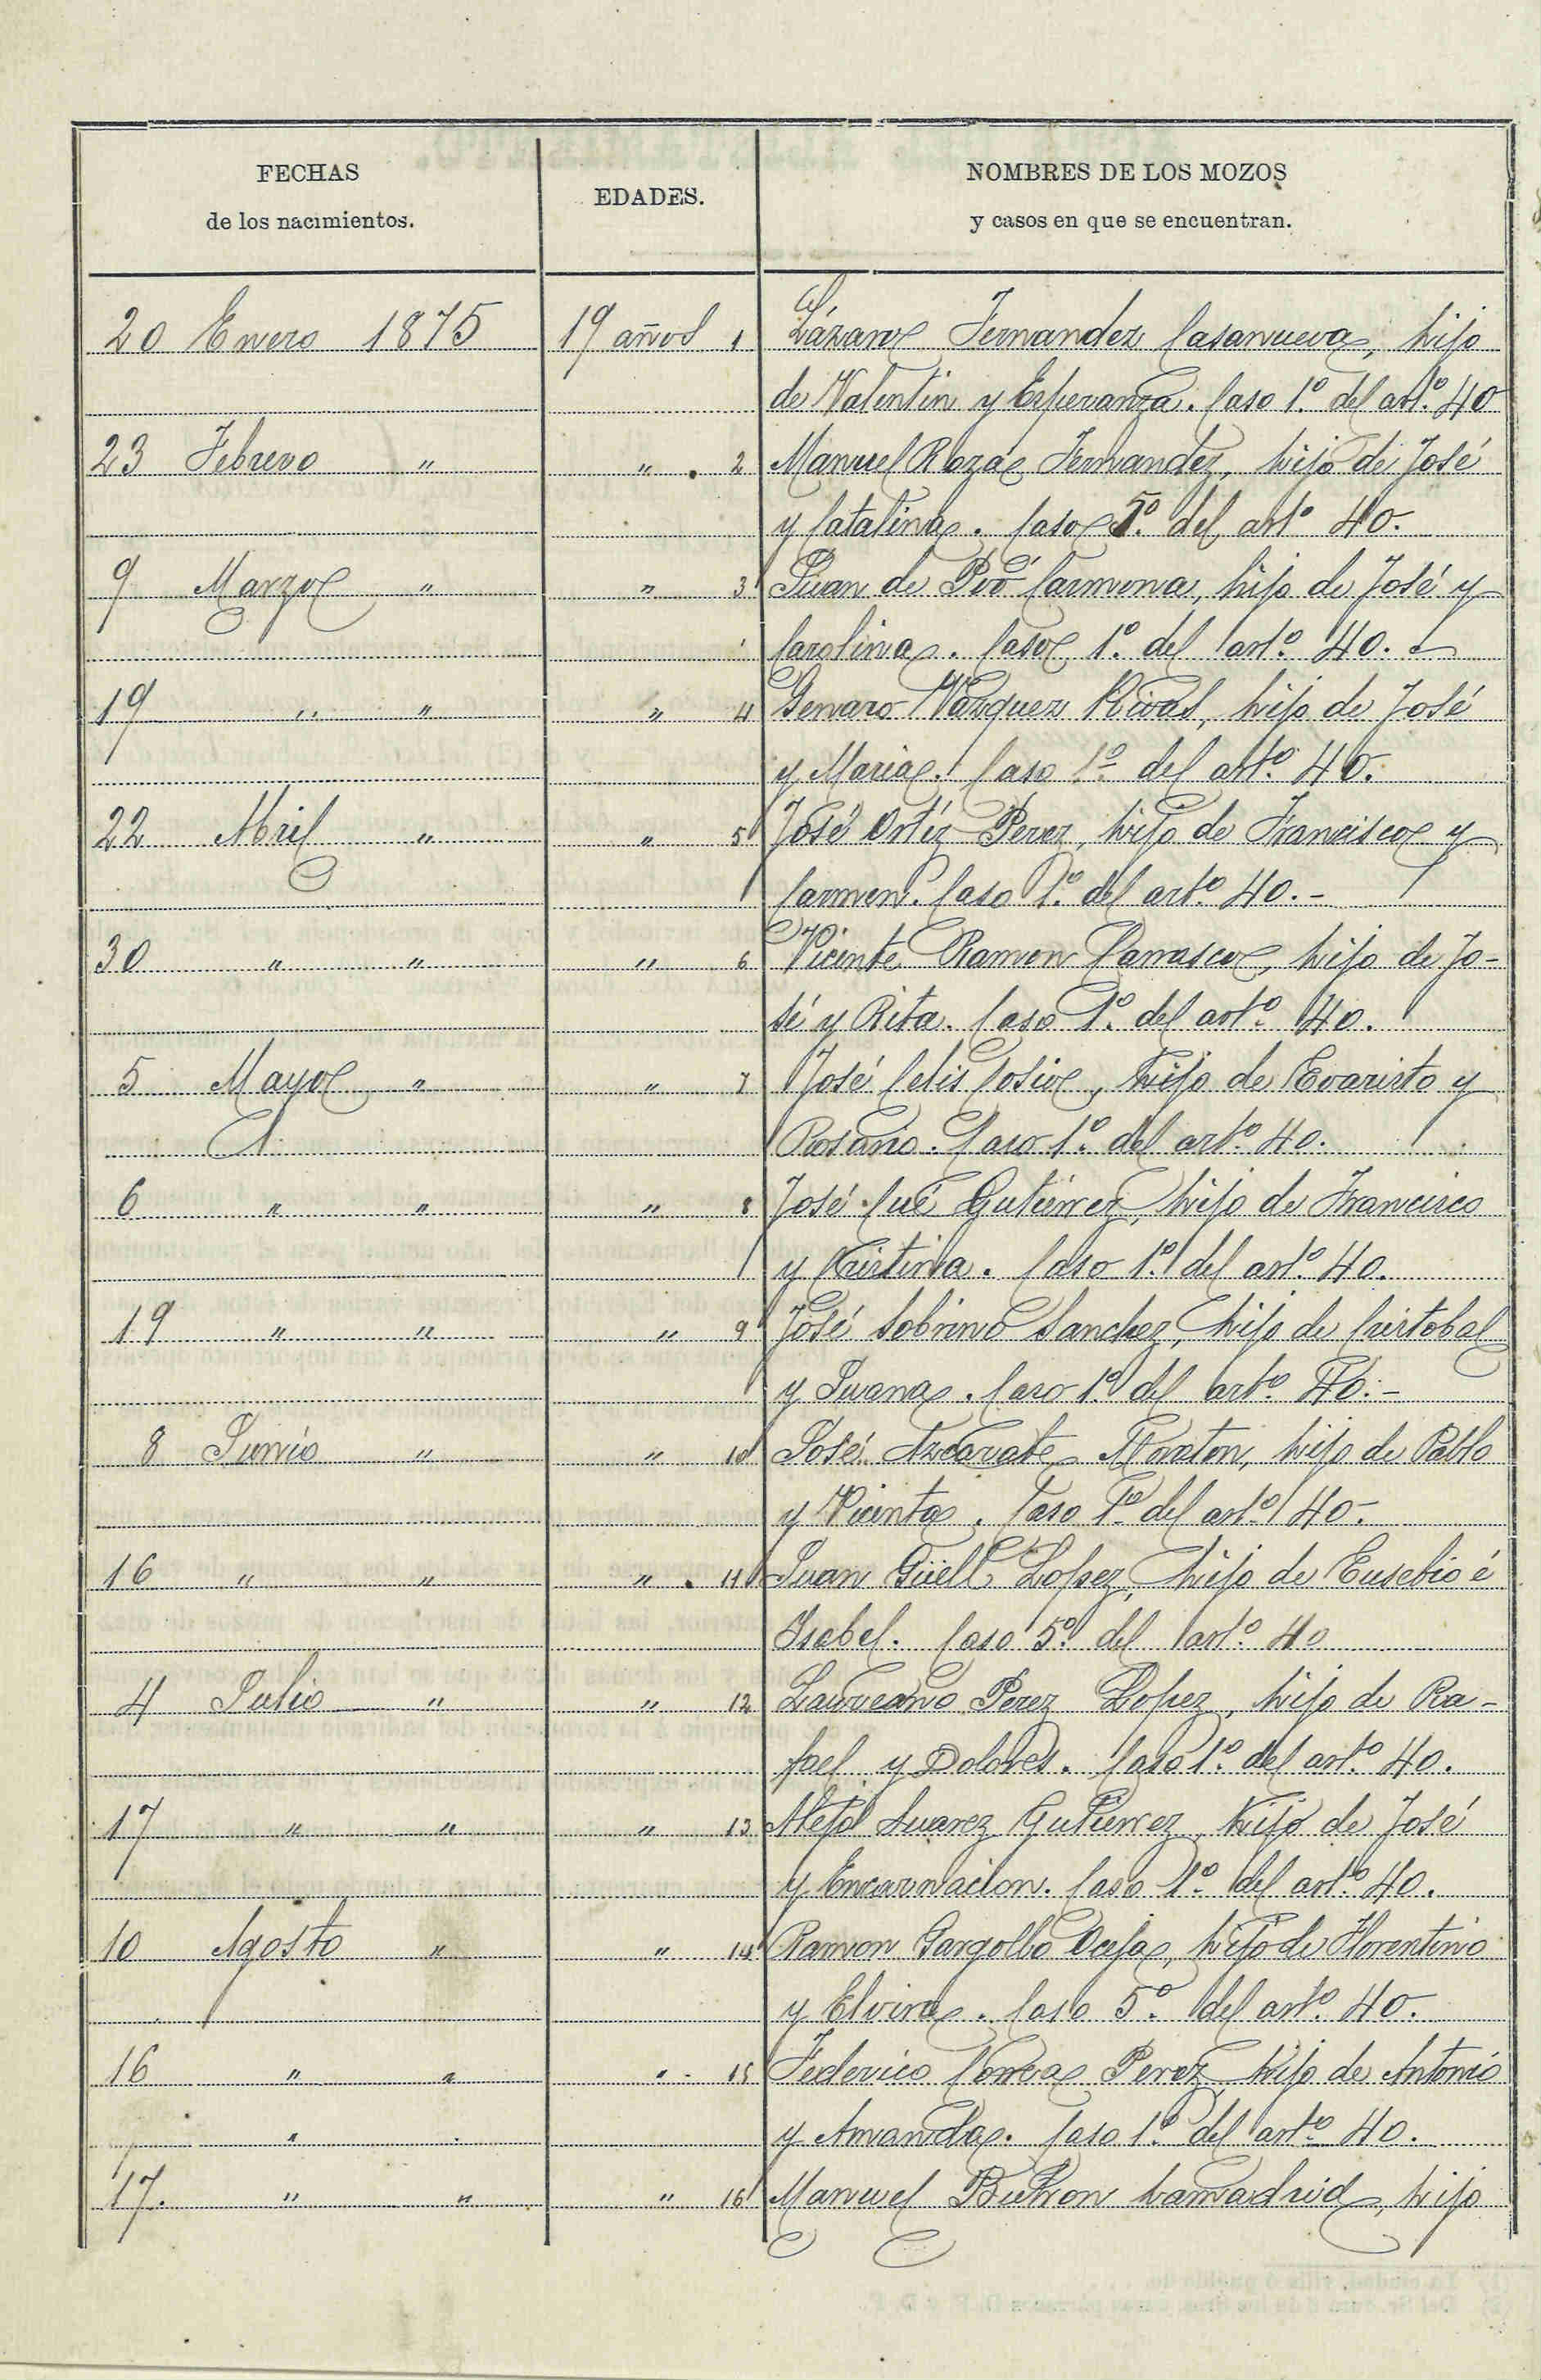 FECHAS
de los nacimientos.
EDADES.
NOMBRES DE LOS MOZOS
y casos en que se encuentran.
20 Enero 1875 19 años 1 Lázaro Fernandez Casanueva, hijo
de Valentin y Esperanza. Caso 1º del artº 40
23 Febrero " " 2 Manuel Rozas Fernandez, hijo de José
y Catalina. Caso 5º del artº 40.
9 Marzo " " 3 Juan de Poó Carmona, hijo de José y
Carolina. Caso 1º del artº 40.
19 " " " 4 Genaro Vazquez Rivas, hijo de José
y Maria. Caso 1º del artº 40.
22 Abril " " 5 José Ortíz Perez, hijo de Francisco y
Carmen. Caso 1º del artº 40.-
30 " " " 6 Vicente Ramon Carrasco, hijo de Jo-
sé y Rita. Caso 1º del artº 40.
5 Mayo " " 7 José Celis Cosio, hijo de Evaristo y
Rosario. Caso 1º del artº 40.
6 " " " 8 José Cué Gutiérrez, hijo de Francisco
y Cristina. Caso 1º del artº 40.
19 " " " 9 José Sobrino Sanchez, hijo de Cristobal
y Juana. Caso 1º del artº 40.-
8 Junio " " 10 José Azcarate, hijo de Pablo
y Vicenta. Caso 1º del artº 40-
16 " " " 11 Juan Güell Lopez, hijo de Eusebio é
Isabel. Caso 5º del artº 40
4 Julio " " 12 Laureano Perez Lopez, hijo de Ra-
fael y Dolores. Caso 1º del artº 40.
17 " " " 13 Alejo Suarez Gutierrez, hijo de José
y Encarnacion. Caso 1º del artº 40.
10 Agosto " " 14 Ramon Gargollo Oceja, hijo de Florentino
y Elvira. Caso 5º del artº 40.
16 " " " 15 Federico Correa Perez, hijo de Antonio
y Amanda. Caso 1º del artº 40.
17. " " " 16 Manuel Buitron Lamadrid, hijo